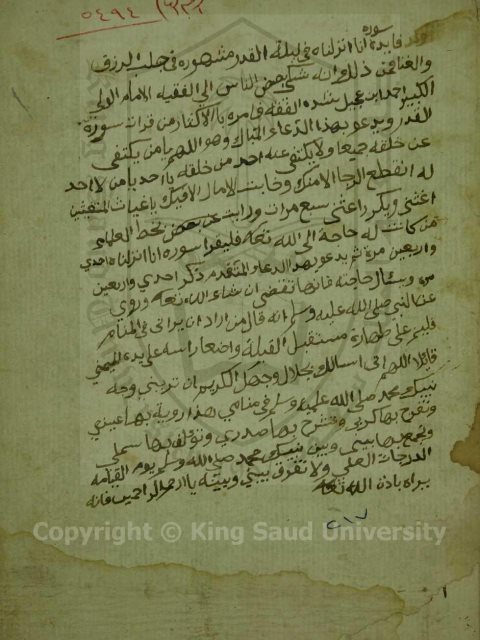 ٥٤٩٤
فايدة سورة انا انزلناه في ليلة القدر مشهوره في جلب الرزق
والغنا فمن ذلك انه شكى بعض الناس الي الفقيه الامام الولي
الكبير احمد ابن عجيل شدة الفقه فامره بالاكثار من قراة سورة
القدر ويدعو بهذا الدعاء المبارك وهو اللهم يا من يكتفي
عن خلقه جميعا ولا يكتفي عنه احد من خلقه يا احد يا من لا احد
له انقطع الرجا الا منك وخابت الامال الا فيك يا غياث المستغيثين
اغثني ويكرر اغثني سبع مرات ورايت عن بعض بخط العلماء
من كانت له حاجة الي الله تعه فليقرا سورة انا انزلناه احدي
واربعين مرة ثم يدعو بهذ الدعاء المتقدم ذكر احدي واربعين
مره ويسال حاجته فانها تقضي ان شاء الله تعه وروي
عن النبي صلى الله عليه وسلم انه قال من اراد ان يراني في المنام
فلينم على طهارة مستقبل القبلة واضعا راسه على يده اليمني
قايلا اللهم اني اسالك بجلال وجهك الكريم ان تريني وجه
نبيك محمد صلى الله عليه وسلم في منامي هذا روية بها عيني
وتفرج بها كربي وتشرح بها صدري وتولف بها شملي
وتجمع بها بيني وبين نبيك محمد صلى الله وسلم يوم القيامه
الدرجات العلي ولا تفرق بيني وبينه يا ارحم الراحمين فانه
يراه باذن الله تعه
٥١٧
١
Copyright © King Saud University